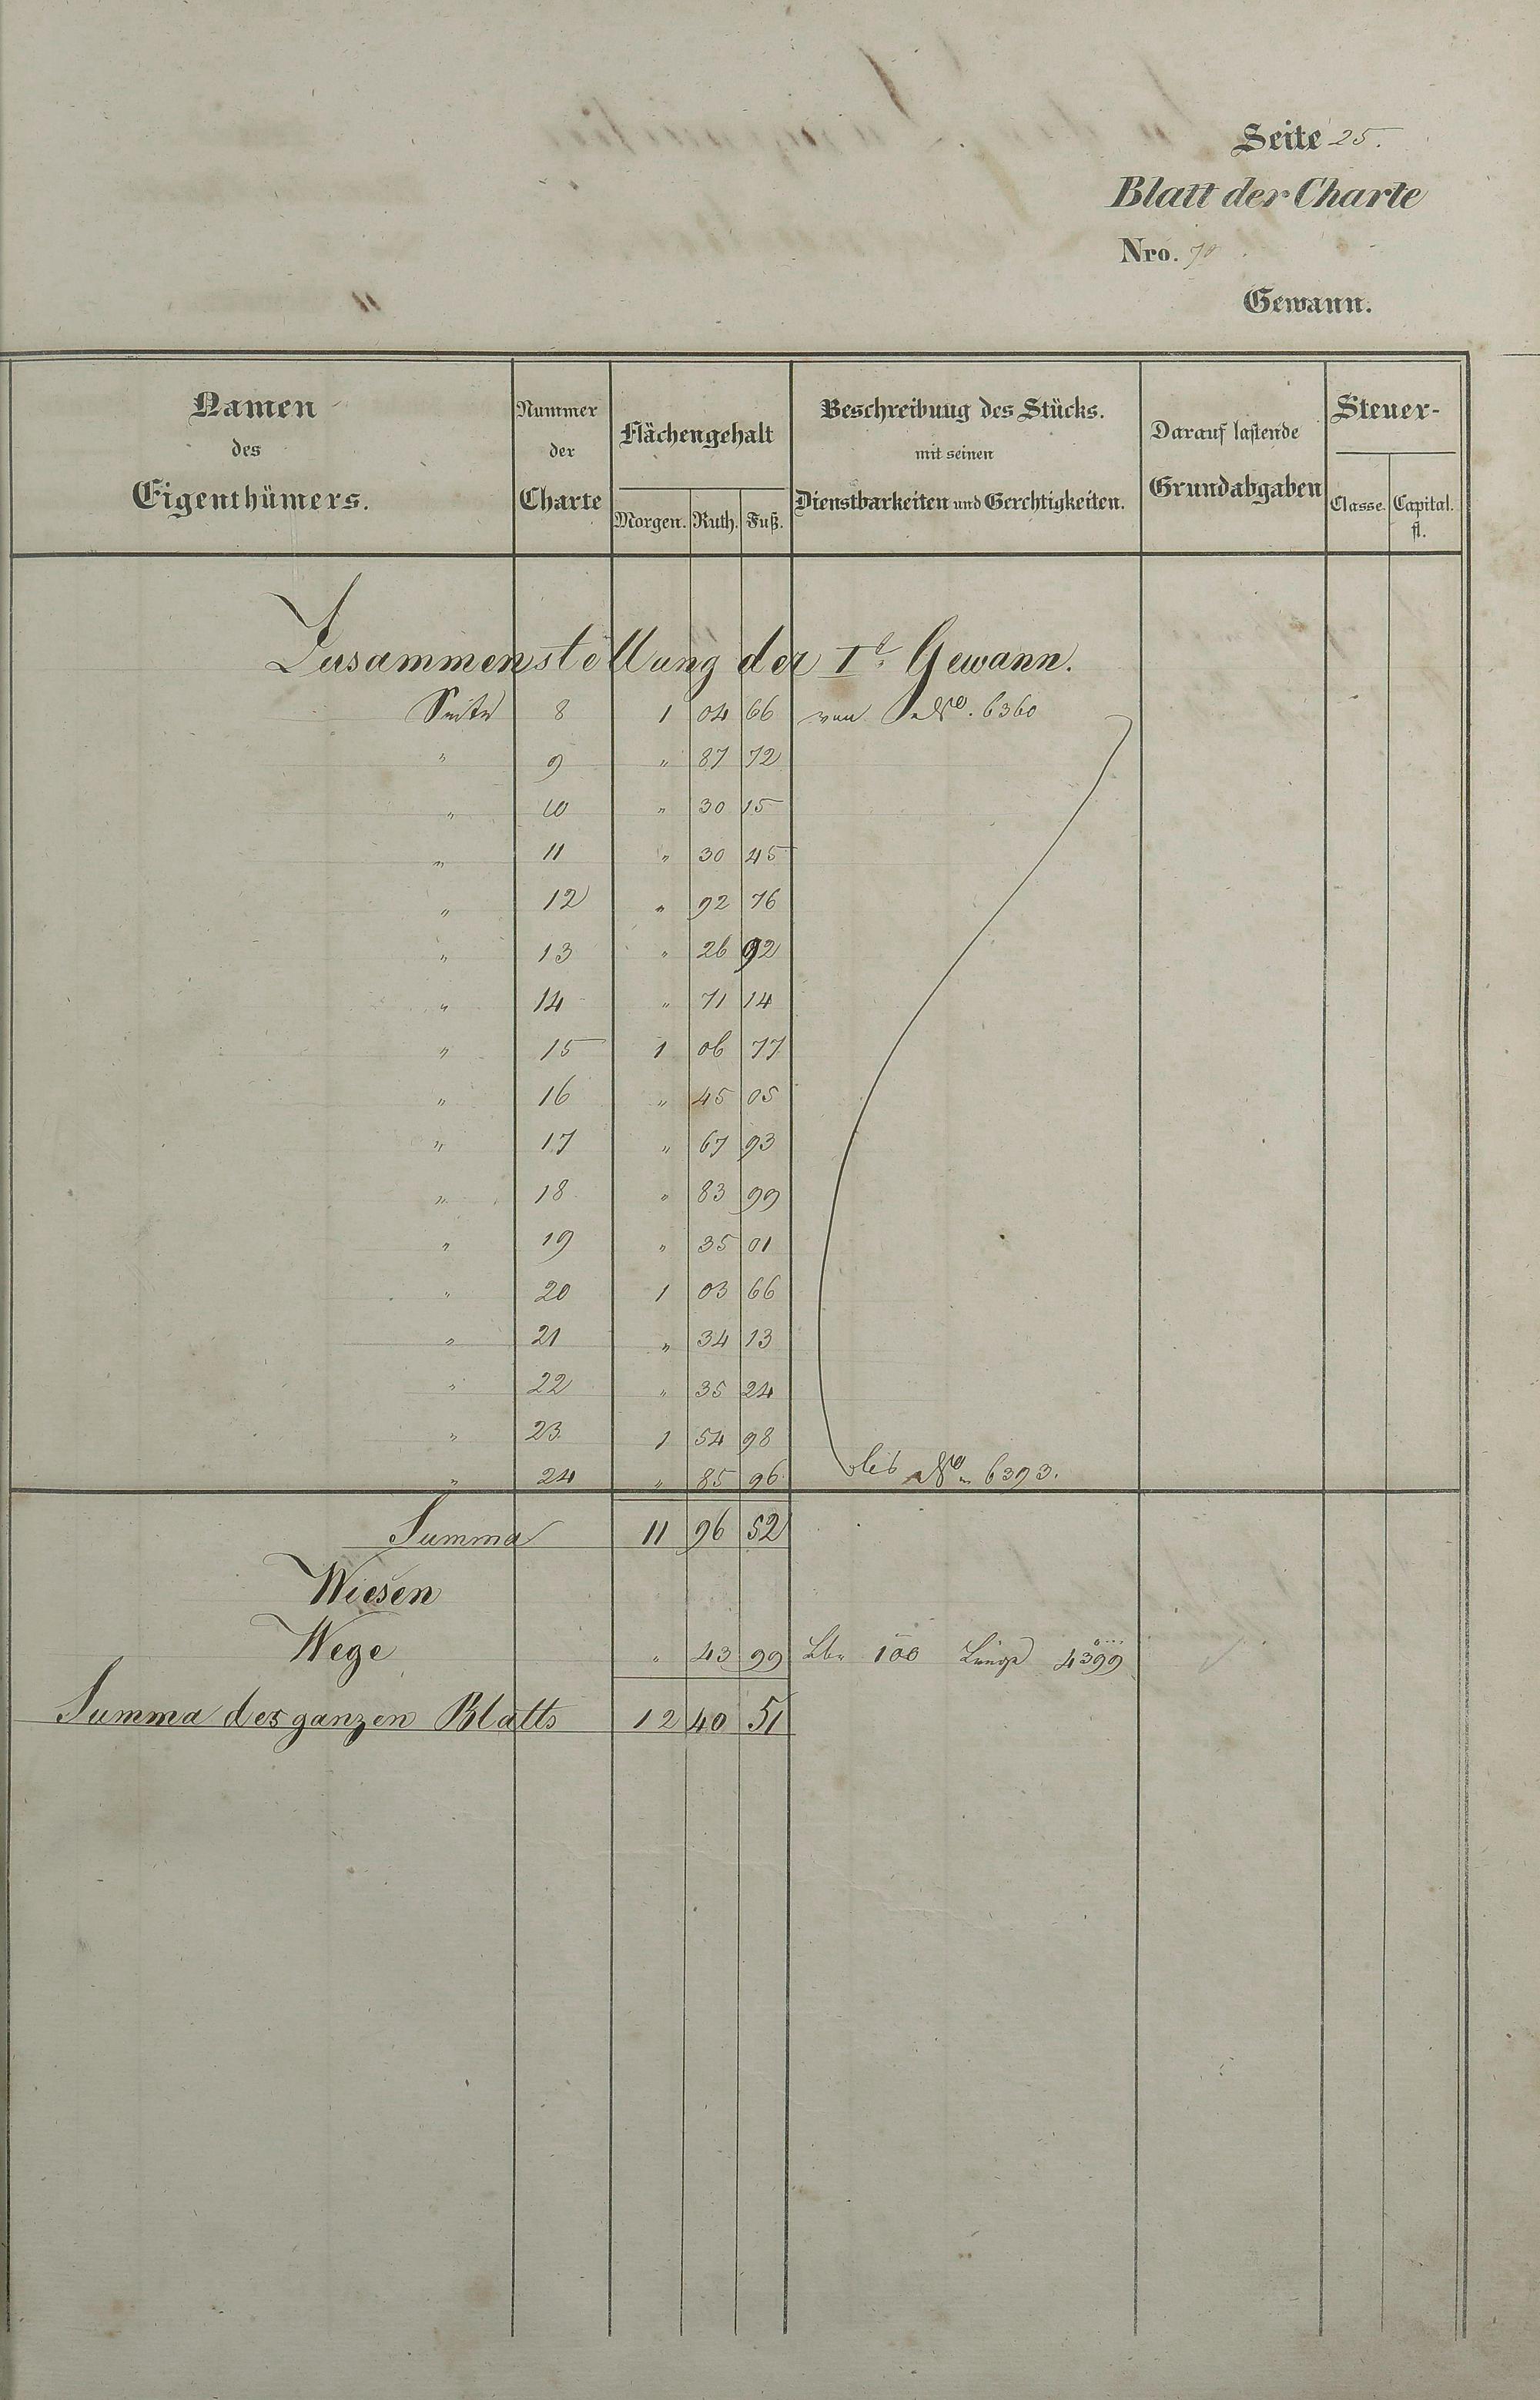 Seite 25.
Blatt der Charte
Nro. 70
Gewann.
Namen des Eigenthümers.
Nummer der Charte
Flächengehalt
Morgen. Ruth. Fuß.
Beschreibung des Stücks. mit seinen Dienstbarkeiten und Gerchtigkeiten.
Darauf lastende Grundabgaben
Steuer-
Classe. Capital. fl.
Zusammenstellung der It. Gewann.
Seite 8 1 04 66 von No. 6360
" 9 " 87 72
" 10 " 30 15
" 11 " 30 45
" 12 " 92 76
" 13 " 26 92
" 14 " 71 14
" 15 1 06 77
" 16 " 45 05
" 17 " 67 93
" 18 " 83 99
" 19 " 35 01
" 20 1 03 66
" 21 " 34 13
" 22 " 35 24
" 23 1 54 98
" 24 " 85 96 bis No. 6393.
Summa 11 96 52
Wiesen
Wege " 43 99 100 Länge 4399
Summa des ganzen Blatts 12 40 51